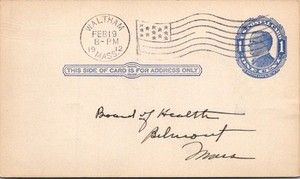 WALTHAM
FEB 19
8-PM
1912
MASS.
1 1
THIS SIDE OF CARD IS FOR ADDRESS ONLY
Board of Health
Belmont
Mass